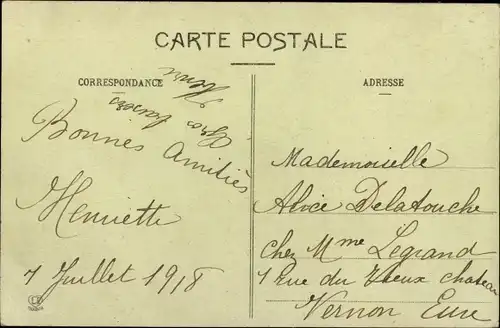 CARTE POSTALE
CORRESPONDANCE
ADRESSE
Gros baisers
Bonnes Amitiés
Henriette
7 Juillet 1918
Mademoiselle
Alice Delatouche
chez Mme Legrand
1 rue du Vieux chateau
Vernon Eure